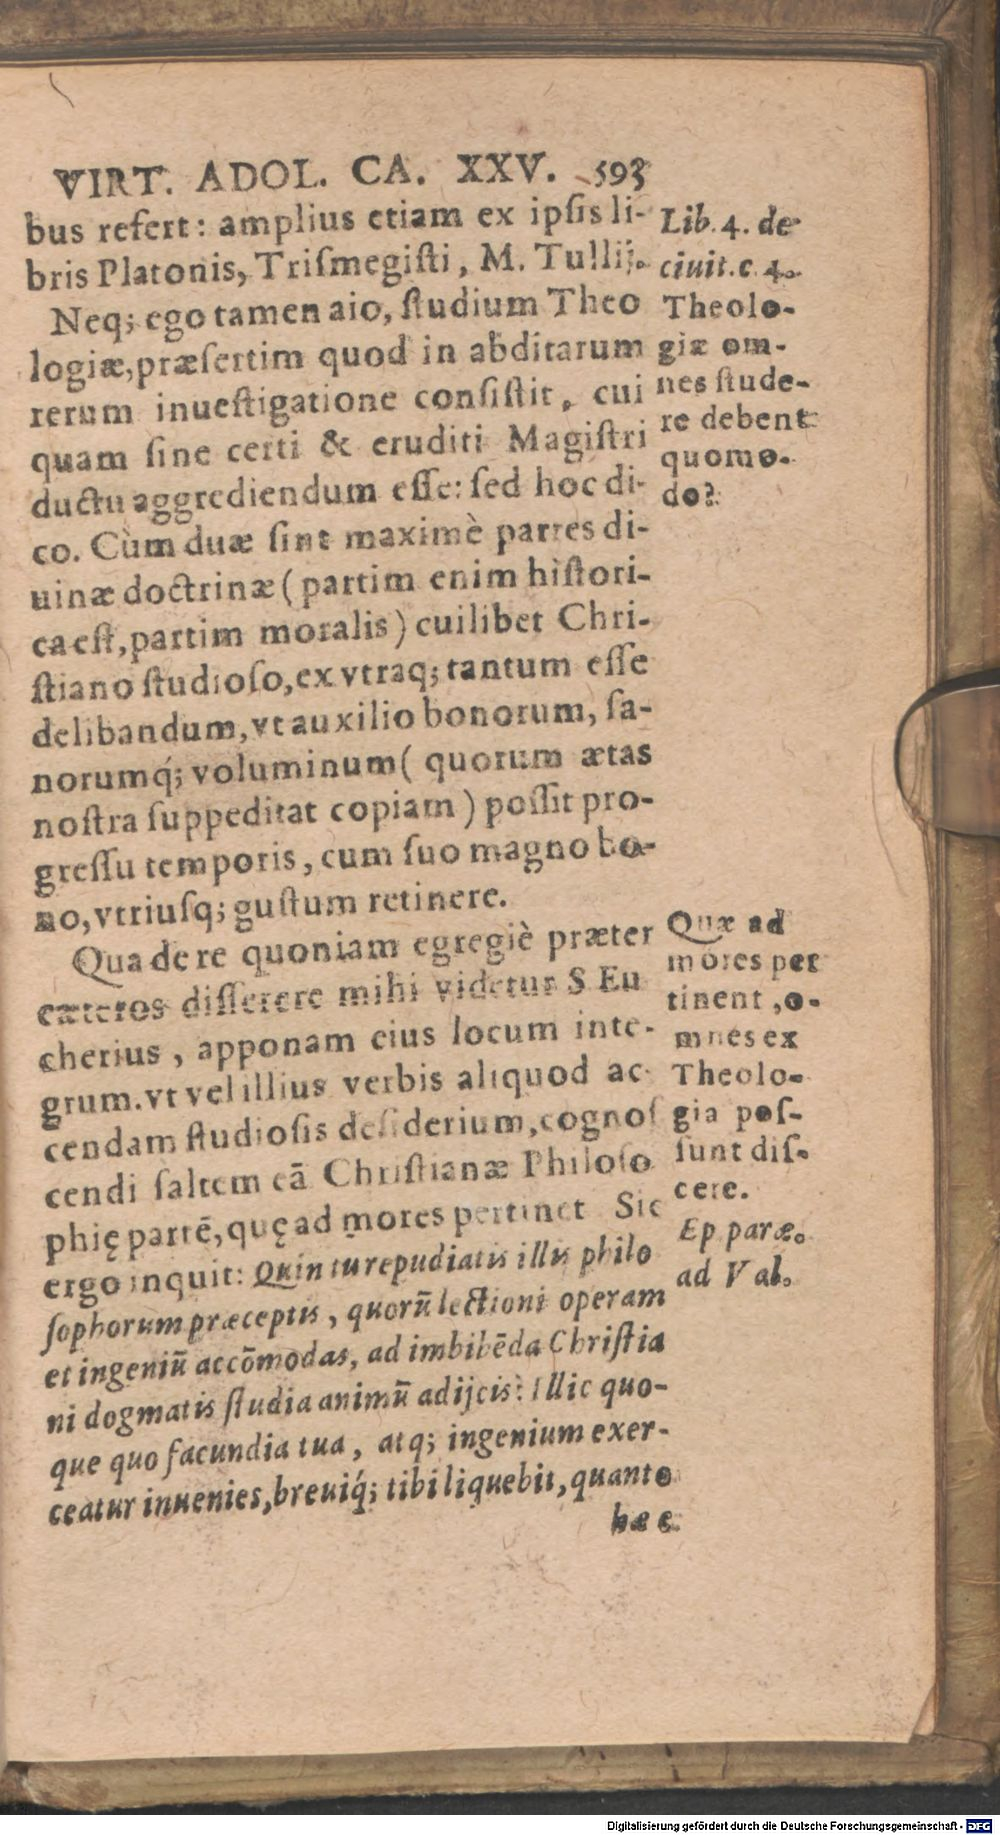 VIRT. ADOL. CA. XXV. 593
bus refert: amplius etiam ex ipſis li-
bris Platonis, Triſmegiſti, M. Tullij.
Neq; ego tamen aio, ſtudium Theo
logiæ, præſertim quod in abditarum
rerum inueſtigatione conſiſtit, cui
quam ſine certi & eruditi Magiſtri
ductu aggrediendum eſſe: ſed hoc di-
co. Cùm duæ ſint maximè partes di-
uinæ doctrinæ (partim enim hiſtori-
ca eſt, partim moralis) cuilibet Chri-
ſtiano ſtudioſo, ex vtraq; tantum eſſe
delibandum, vt auxilio bonorum, ſa-
norumq́; voluminum (quorum ætas
noſtra ſuppeditat copiam) poſſit pro-
greſſu temporis, cum ſuo magno bo-
no, vtriuſq; guſtum retinere.
Qua de re quoniam egregiè præter
cæteros diſſerere mihi videtur S Eu
cherius, apponam eius locum inte-
grum. vt vel illius verbis aliquod ac-
cendam ſtudioſis deſiderium, cognoſ
cendi ſaltem eā Chriſtianæ Philoſo
phię partē, quę ad mores pertinet Sic
ergo inquit: Quin tu repudiatis illis philo
ſophorum præceptis, quorū lectioni operam
et ingeniū accōmodas, ad imbibēda Chriſtia
ni dogmatis ſtudia animū adijcis? Illic quo-
que quo facundia tua, atq; ingenium exer-
ceatur inuenies, breuiq́; tibi liquebit, quanto
hæc
Lib. 4. de
ciuit. c. 4.
Theolo-
giæ om-
nes ſtude-
re debent
quomo-
do?
Quæ ad
mores per
tinent, o-
mnes ex
Theolo-
gia poſ-
ſunt diſ-
cere.
Ep paræ.
ad Val.
Digitalisierung gefördert durch die Deutsche Forschungsgemeinschaft - DFG